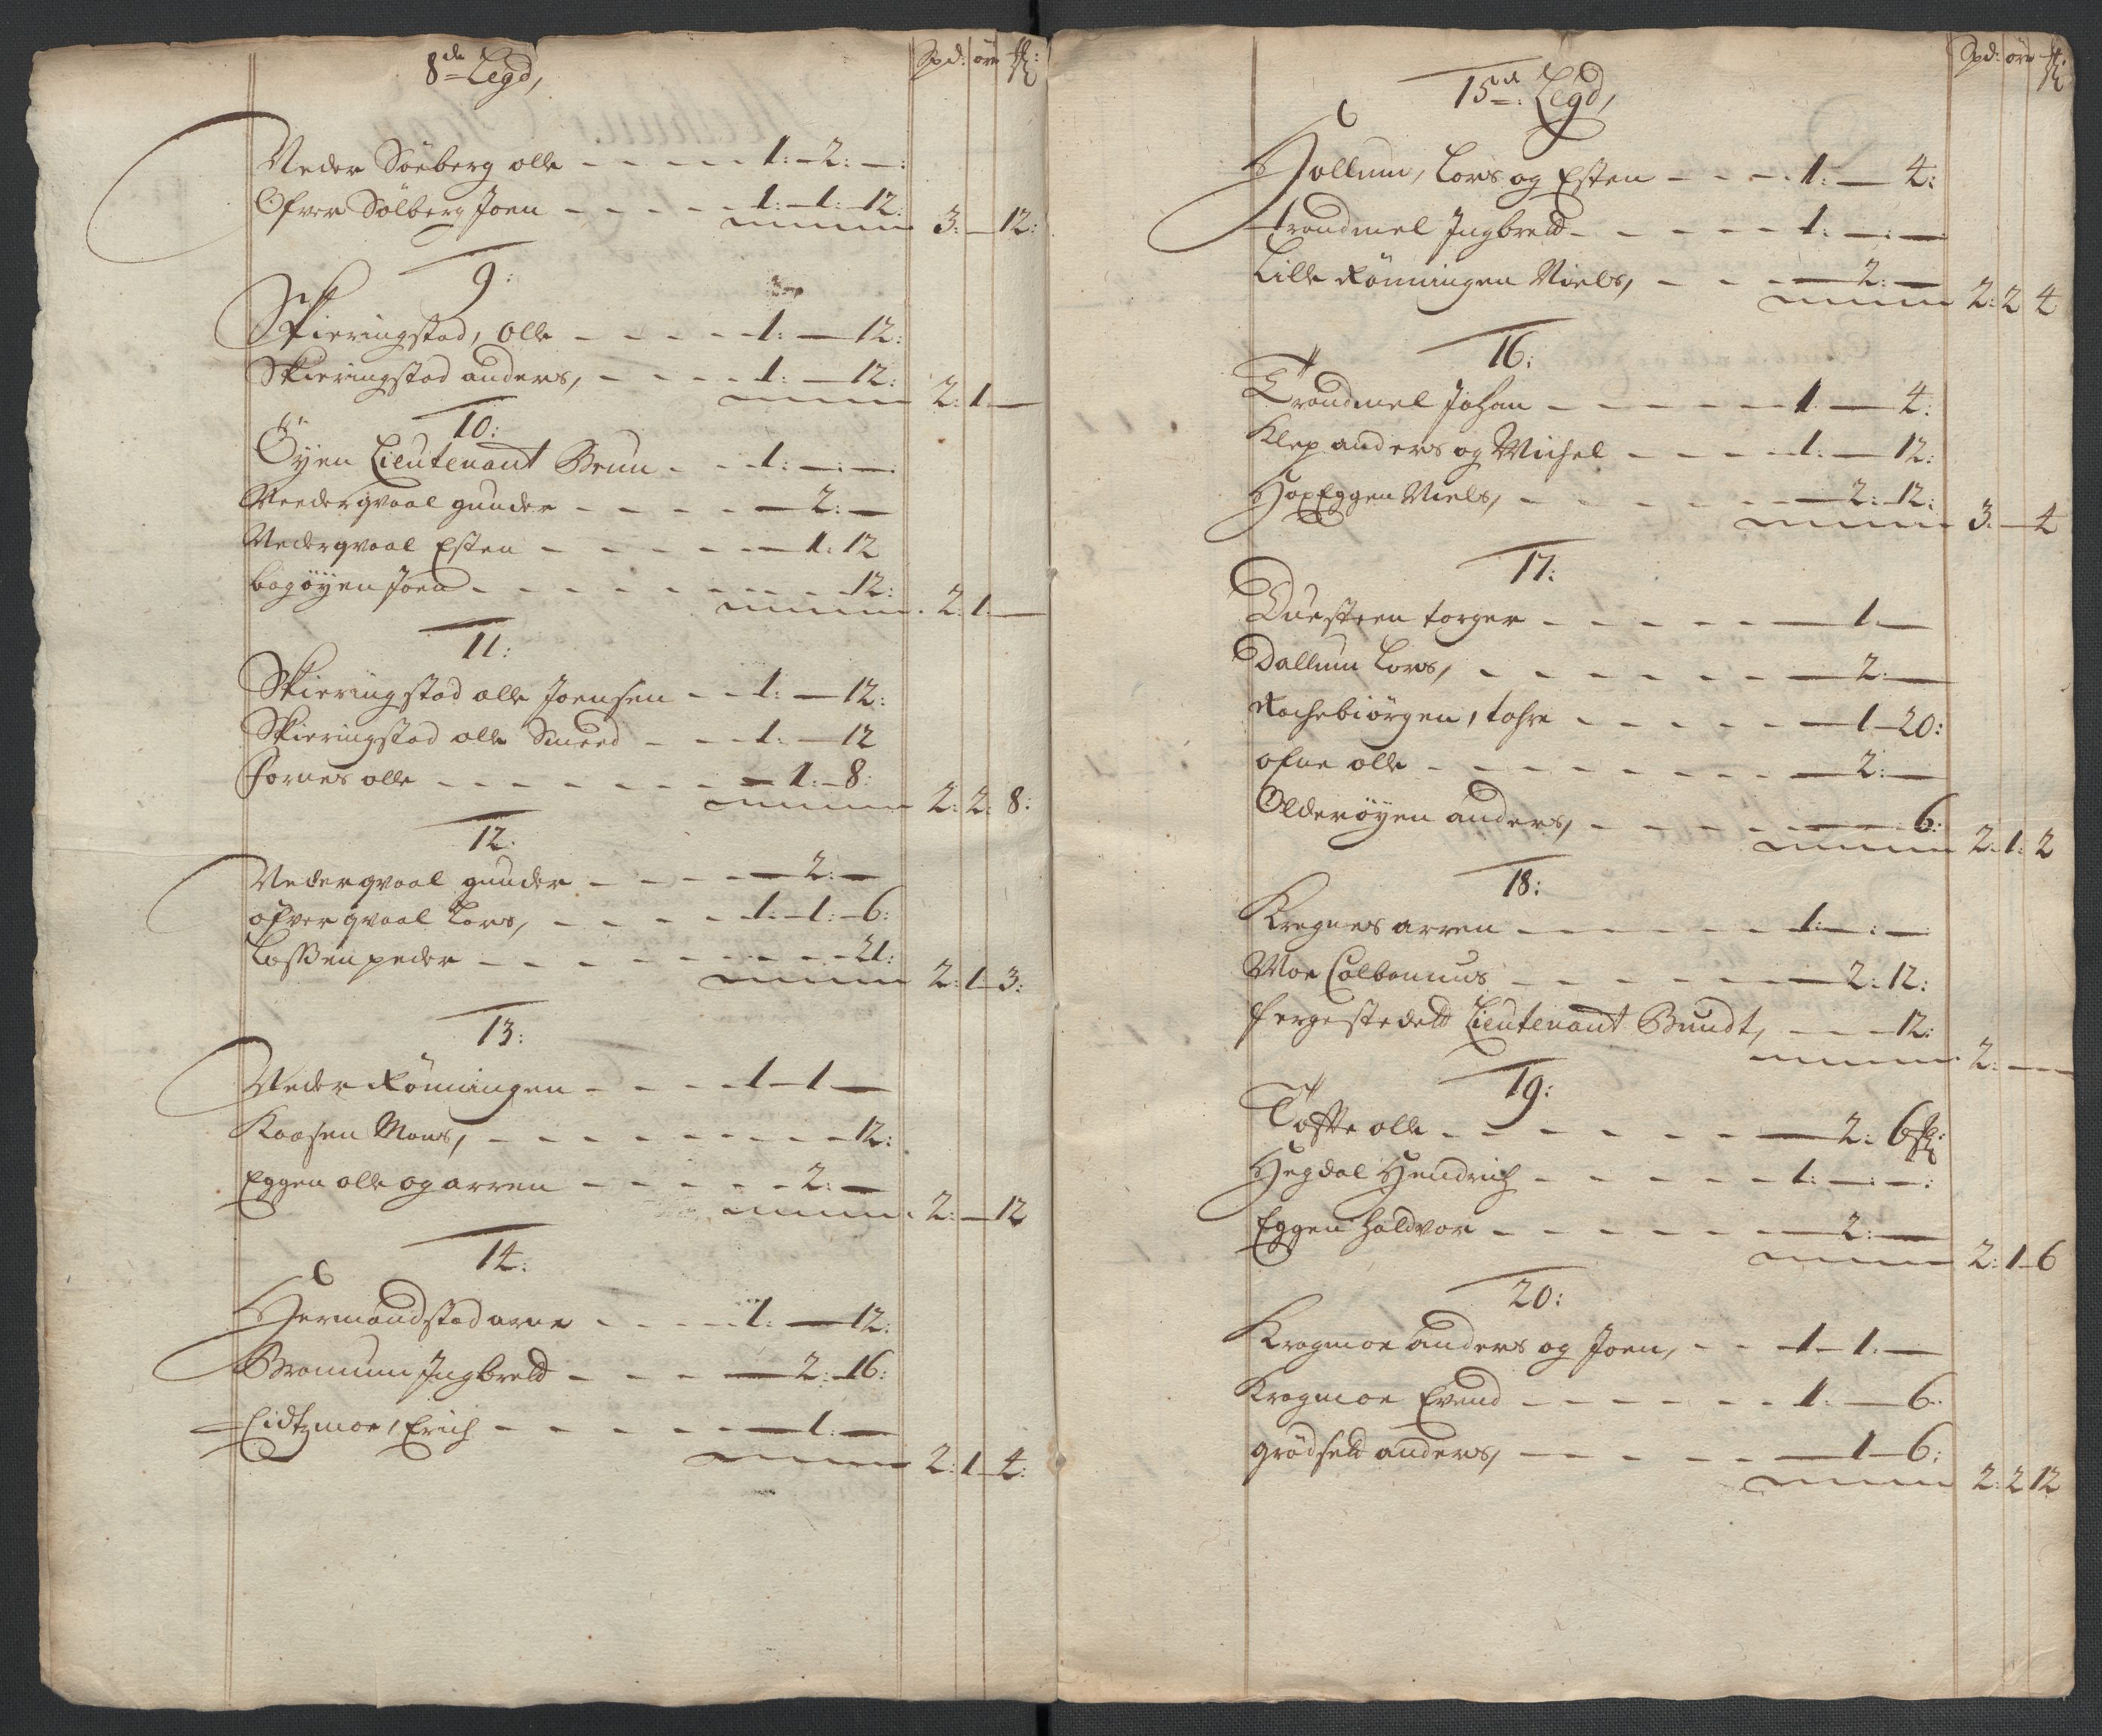 8de Legd,
Spd: ört ß:
Neder Söeberg olle - - - - - 1:-2:-:
Ofver Sölberg Joen - - - - - 1:-1:-12:
3:-12:
9:
Skieringstad, Olle - - - - 1:-12:
Skieringstad anders, - - - - 1:-12:
2:1-
10:
Öyen Lieutenant Brun - - 1:-:-:
Needergvaal gunder - - - - 2:-
Nedergvaal Esten - - - - - 1:12
bagöyen Joen - - - - - - - 12:
2:1-
11:
Skieringstad olle Joensen - - 1:-12:
Skieringstad olle Smeed - - - 1:-12
Fornes olle - - - - - - - 1:-8:
2:2:8:
12:
Nedergvaal gunder - - - - 2:-
ofvergvaal Lars, - - - - 1:-1:-6:
Lassen peder - - - - - - - - 21:
2:1-3:
13:
Neder Rönningen - - - - 1-1-
Kaasen Mons, - - - - - - - - 12:
Eggen olle og arren - - - - - 2:-
2:-12
14:
Hermandstad arne - - - - 1:-12:
Bramum Ingbreld - - - - 2:-16:
Lidtzmoe, Erich - - - - - - 1:-
2:1-4:
15de: Legd,
Spd: ört ß
Hollum, Lars og Esten - - - 1:-4:
trandmel Ingbreld - - - - - 1:-:-
Lille Rönningen Niels, - - - 2:-
2:2 4
16:
Trandmel Johan - - - - - - 1-4:
Klep anders og Michel - - - - 1:-12:
HaxEggen Niels, - - - - - - 2:-12:
3:-4
17:
Duesteen torger - - - - - 1:-
Dallum Lars, - - - - - - 2:-
Rochebiörgen, tohre - - - - - 1-20:
ofne olle - - - - - - - - 2:-
Olderöyen anders, - - - - - 6:
2-1:2
18:
Kregnes arren - - - - - - - 1:-:-
Moe Colbennus - - - - - - 2:12:
fergestedeld Lieutenant Bundt, - - - 12:
2:--
19:
Tofte olle - - - - - - 2:6ß:
Hegdal Hendrich - - - - - 1:-:-:
Eggen haldvor - - - - - - 2:-
2:1-6
20:
Kragmoe anders og Joen, - - 1-1:-
Kragmoe Evend - - - - - - 1:-6:
grödseld anders, - - - - - 1-6:
2:2 12